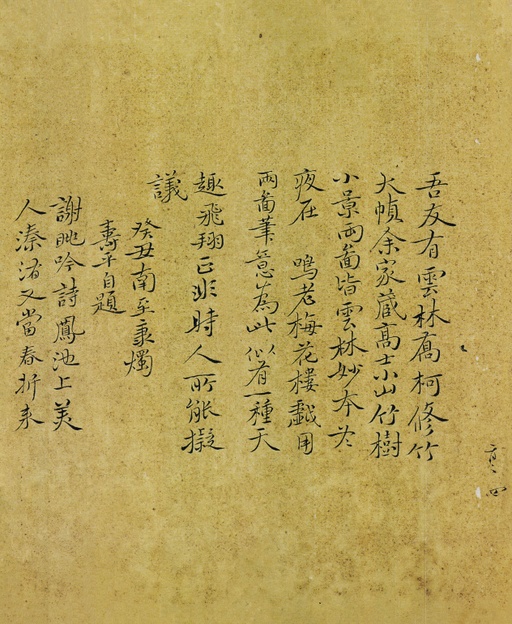 吾友有雲林喬柯修竹
大幀余家藏高士小山竹樹
小景兩啚皆雲林妙本冬
夜在 鳴老梅花樓戲用
兩啚筆意為此似有一種天
趣飛翔正非時人所能擬
議
癸丑南至秉燭
壽平自題
謝朓吟詩鳳池上美
人溱洧又當春折来